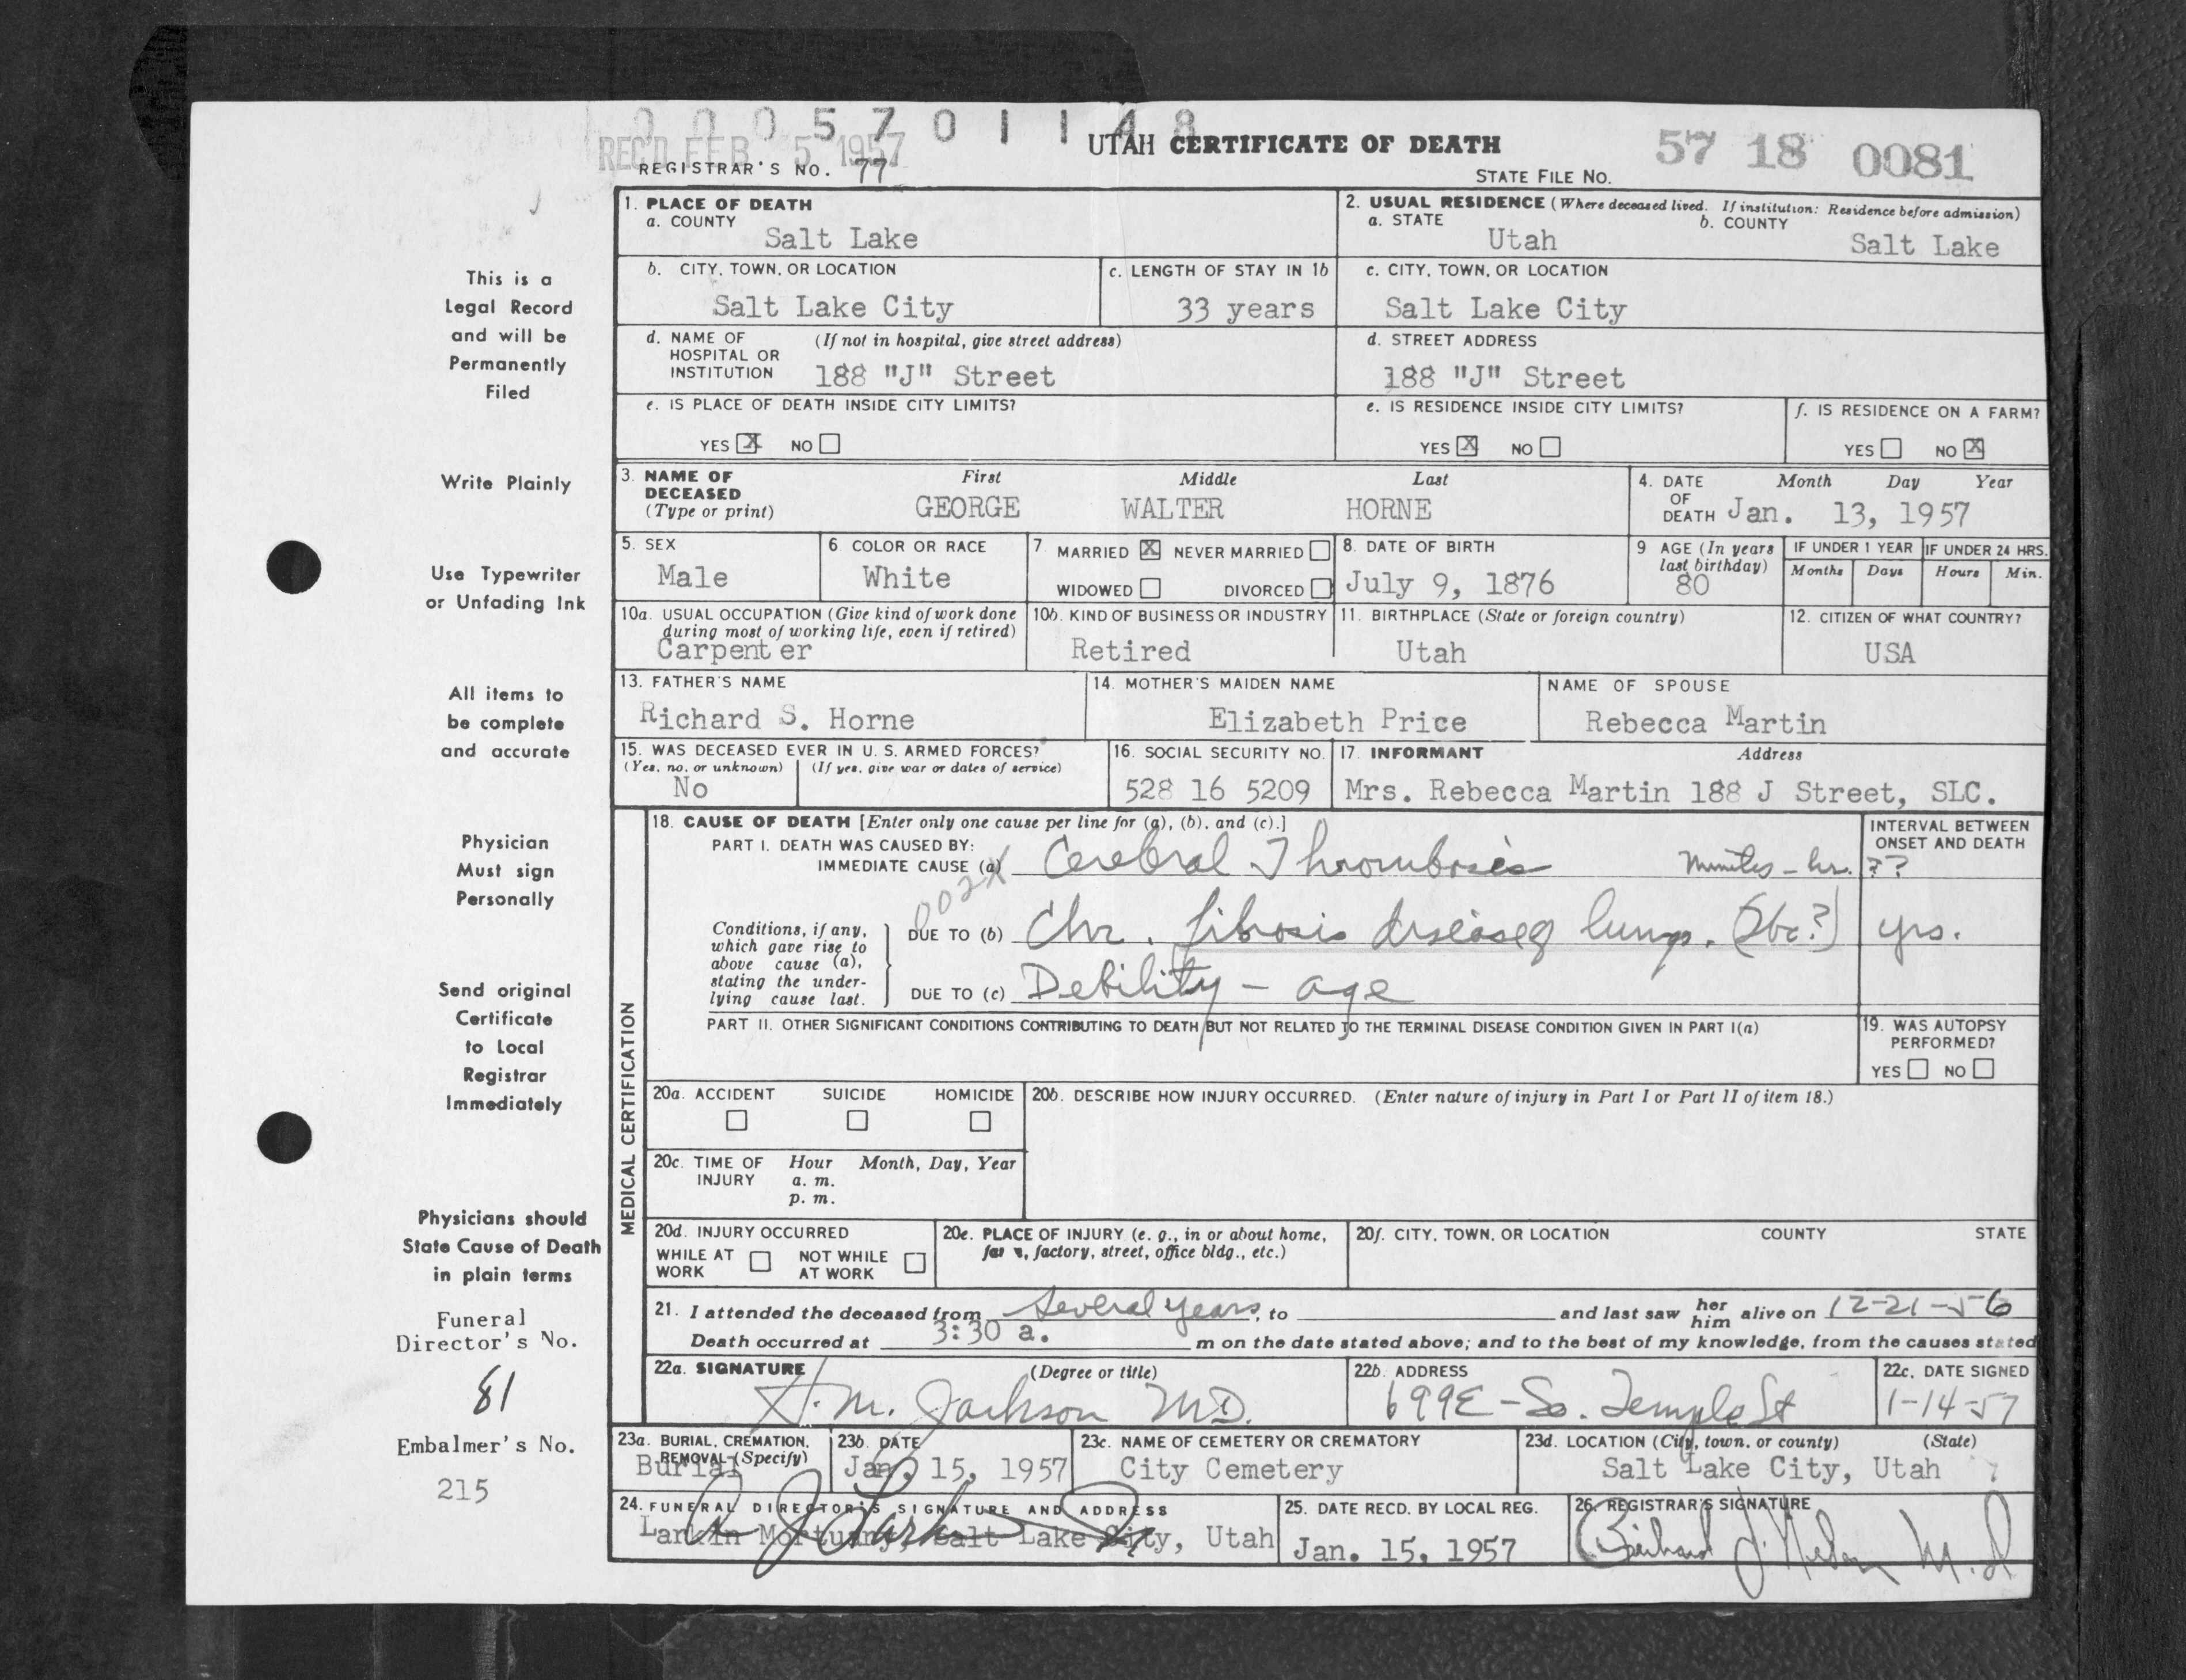 0 0 0 5 7 0 1 1 4 8
REC'D FEB 5 1957
UTAH CERTIFICATE OF DEATH
57 18 0081
REGISTRAR'S NO. 77
STATE FILE NO.
This is a
Legal Record
and will be
Permanently
Filed
Write Plainly
Use Typewriter
or Unfading Ink
All items to
be complete
and accurate
Physician
Must sign
Personally
Send original
Certificate
to Local
Registrar
Immediately
Physicians should
State Cause of Death
in plain terms
Funeral
Director's No.
81
Embalmer's No.
215
1. PLACE OF DEATH
a. COUNTY
Salt Lake
2. USUAL RESIDENCE (Where deceased lived. If institution: Residence before admission)
a. STATE b. COUNTY
Utah Salt Lake
b. CITY, TOWN, OR LOCATION
Salt Lake City
c. LENGTH OF STAY IN 1b
33 years
c. CITY, TOWN, OR LOCATION
Salt Lake City
d. NAME OF (If not in hospital, give street address)
HOSPITAL OR
INSTITUTION 188 "J" Street
d. STREET ADDRESS
188 "J" Street
e. IS PLACE OF DEATH INSIDE CITY LIMITS?
YES X NO
e. IS RESIDENCE INSIDE CITY LIMITS?
YES X NO
f. IS RESIDENCE ON A FARM?
YES NO X
3. NAME OF First Middle Last
DECEASED
(Type or print) GEORGE WALTER HORNE
4. DATE Month Day Year
OF
DEATH Jan. 13, 1957
5. SEX
Male
6. COLOR OR RACE
White
7. MARRIED X NEVER MARRIED
WIDOWED DIVORCED
8. DATE OF BIRTH
July 9, 1876
9 AGE (In years
last birthday)
80
IF UNDER 1 YEAR IF UNDER 24 HRS.
Months Days Hours Min.
10a. USUAL OCCUPATION (Give kind of work done
during most of working life, even if retired)
Carpenter
10b. KIND OF BUSINESS OR INDUSTRY
Retired
11. BIRTHPLACE (State or foreign country)
Utah
12. CITIZEN OF WHAT COUNTRY?
USA
13. FATHER'S NAME
Richard S. Horne
14. MOTHER'S MAIDEN NAME
Elizabeth Price
NAME OF SPOUSE
Rebecca Martin
15. WAS DECEASED EVER IN U. S. ARMED FORCES?
(Yes, no, or unknown) (If yes, give war or dates of service)
No
16. SOCIAL SECURITY NO.
528 16 5209
17. INFORMANT Address
Mrs. Rebecca Martin 188 J Street, SLC.
MEDICAL CERTIFICATION
18. CAUSE OF DEATH [Enter only one cause per line for (a), (b), and (c).]
INTERVAL BETWEEN
ONSET AND DEATH
PART I. DEATH WAS CAUSED BY:
IMMEDIATE CAUSE (a) Cerebral Thrombosis Minutes - hr. ??
002X
Conditions, if any,
which gave rise to
above cause (a),
stating the under-
lying cause last.
DUE TO (b) Chr. fibrosis disease of lungs. (Tbc?) yrs.
DUE TO (c) Debility - age
PART II. OTHER SIGNIFICANT CONDITIONS CONTRIBUTING TO DEATH BUT NOT RELATED TO THE TERMINAL DISEASE CONDITION GIVEN IN PART I(a)
19. WAS AUTOPSY
PERFORMED?
YES NO
20a. ACCIDENT SUICIDE HOMICIDE
20b. DESCRIBE HOW INJURY OCCURRED. (Enter nature of injury in Part I or Part II of item 18.)
20c. TIME OF Hour Month, Day, Year
INJURY a. m.
p. m.
20d. INJURY OCCURRED
WHILE AT NOT WHILE
WORK AT WORK
20e. PLACE OF INJURY (e. g., in or about home,
farm, factory, street, office bldg., etc.)
20f. CITY, TOWN, OR LOCATION COUNTY STATE
21. I attended the deceased from Several years, to and last saw her him alive on 12-21-56
Death occurred at 3:30 a. m on the date stated above; and to the best of my knowledge, from the causes stated
22a. SIGNATURE (Degree or title)
H. M. Jackson M.D.
22b. ADDRESS
699 E - So. Temple St
22c. DATE SIGNED
1-14-57
23a. BURIAL, CREMATION,
REMOVAL (Specify)
Burial
23b. DATE
Jan. 15, 1957
23c. NAME OF CEMETERY OR CREMATORY
City Cemetery
23d. LOCATION (City, town, or county) (State)
Salt Lake City, Utah
24. FUNERAL DIRECTOR'S SIGNATURE AND ADDRESS
Larkin Mortuary, Salt Lake City, Utah
25. DATE RECD. BY LOCAL REG.
Jan. 15, 1957
26. REGISTRAR'S SIGNATURE
M.D